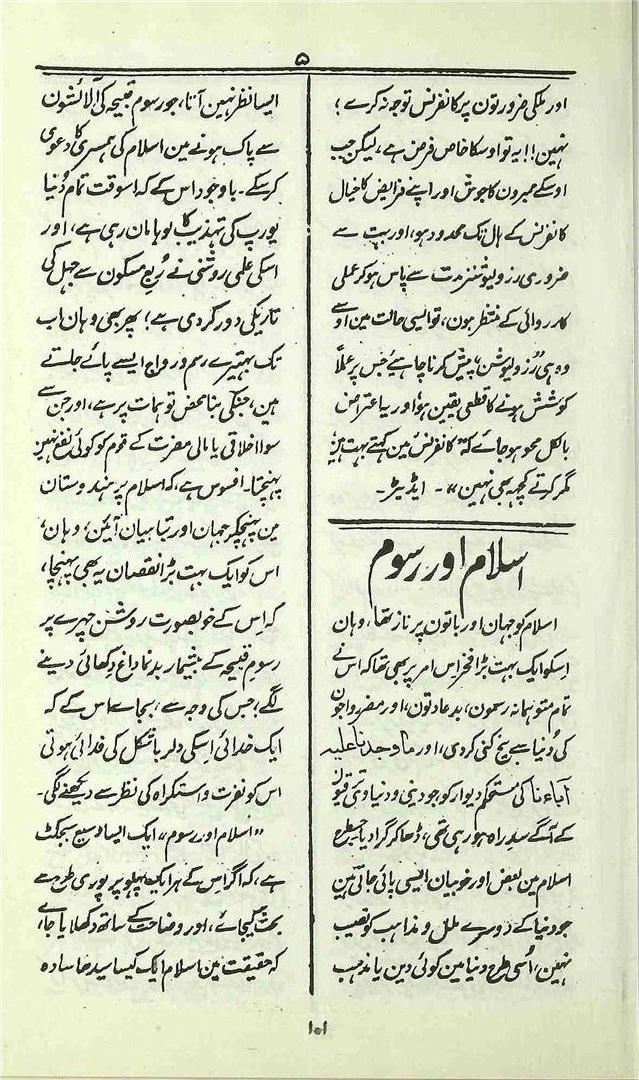 ۵
اور ملکی ضرورتون پر کانفرنس توجہ نہ کرے؛
نہین!! یہ تو اوسکا خاص فرض ہے، لیکن جب
اوسکے ممبرون کا جوش اور اپنے فرایض کا خیال
کانفرنس کے ہال تک محدود ہو، اور بہت سے
ضروری رزولیوشنز مدت سے پاس ہو کر عملی
کارروائی کے منتظر ہون، تو ایسی حالت مین اوسے
وہ ہی رزولیوشن پیش کرنا چاہیے جس پر عملاً
کوشش ہونے کا قطعی یقین ہو اور یہ اعتراض
بالکل محو ہو جائے کہ "کانفرنس مین کہتے بہت ہین
مگر کرتے کچھ بھی نہین"۔ ایڈیٹر۔
اسلام اور رسوم
اسلام کو جہان اور باتون پر ناز تھا، وہان
اسکو ایک بہت بڑا فخر اس امر پر بھی تھا کہ اس نے
تمام متوہمانہ رسمون، بدعادتون، اور مضر رواجون
کی دُنیا سے بیخ کنی کردی، اور ما وجدنا علیہ
آباءنا کی مستحکم دیوار کو جو دینی و دنیاوی ترقیون
کے آگے سدِ راہ ہو رہی تھی، ڈھاکر گرا دیا جسطرح
اسلام مین بعض اور خوبیان ایسی پائی جاتی ہین
جو دنیا کے دوسرے ملل و مذاہب کو نصیب
نہین، اُسی طرح دنیا مین کوئی دین یا مذہب
ایسا نظر نہین آتا، جو رسوم قبیحہ کی آلائشون
سے پاک ہونے مین اسلام کی ہمسری کا دعویٰ
کر سکے۔ باوجود اس کے کہ اسوقت تمام دُنیا
یورپ کی تہذیب کا لوہا مان رہی ہے، اور
اسکی علمی روشنی نے رُبع مسکون سے جہل کی
تاریکی دور کردی ہے؛ پھر بھی وہان اب
تک بہتیرے رسم و رواج ایسے پائے جاتے
ہین، جنکی بنا محض توہمات پر ہے، اور جن سے
سوا اخلاقی یا مالی مضرت کے قوم کو کوئی نفع نہین
پہنچتا۔ افسوس ہے، کہ اسلام پر ہندوستان
مین پہنچکر جہان اور تباہیان آئین، وہان،
اس کو ایک بہت بڑا نقصان یہ بھی پہنچا،
کہ اِس کے خوبصورت روشن چہرے پر
رسومِ قبیحہ کے بیشمار بدنما داغ دِکھائی دینے
لگے، جس کی وجہ سے، بجاے اس کے کہ
ایک خدائی اِسکی دلربا شکل کی فدائی ہوتی
اس کو نفرت و استکراہ کی نظر سے دیکھنے لگی۔
"اسلام اور رسوم" ایک ایسا وسیع سبجکٹ
ہے، کہ اگر اِس کے ہر ایک پہلو پر پوری طرح سے
بحث کیجائے، اور وضاحت کے ساتھ دکھلایا جاے،
کہ حقیقت مین اسلام ایک کیسا سیدھا سادہ
۱۰۱